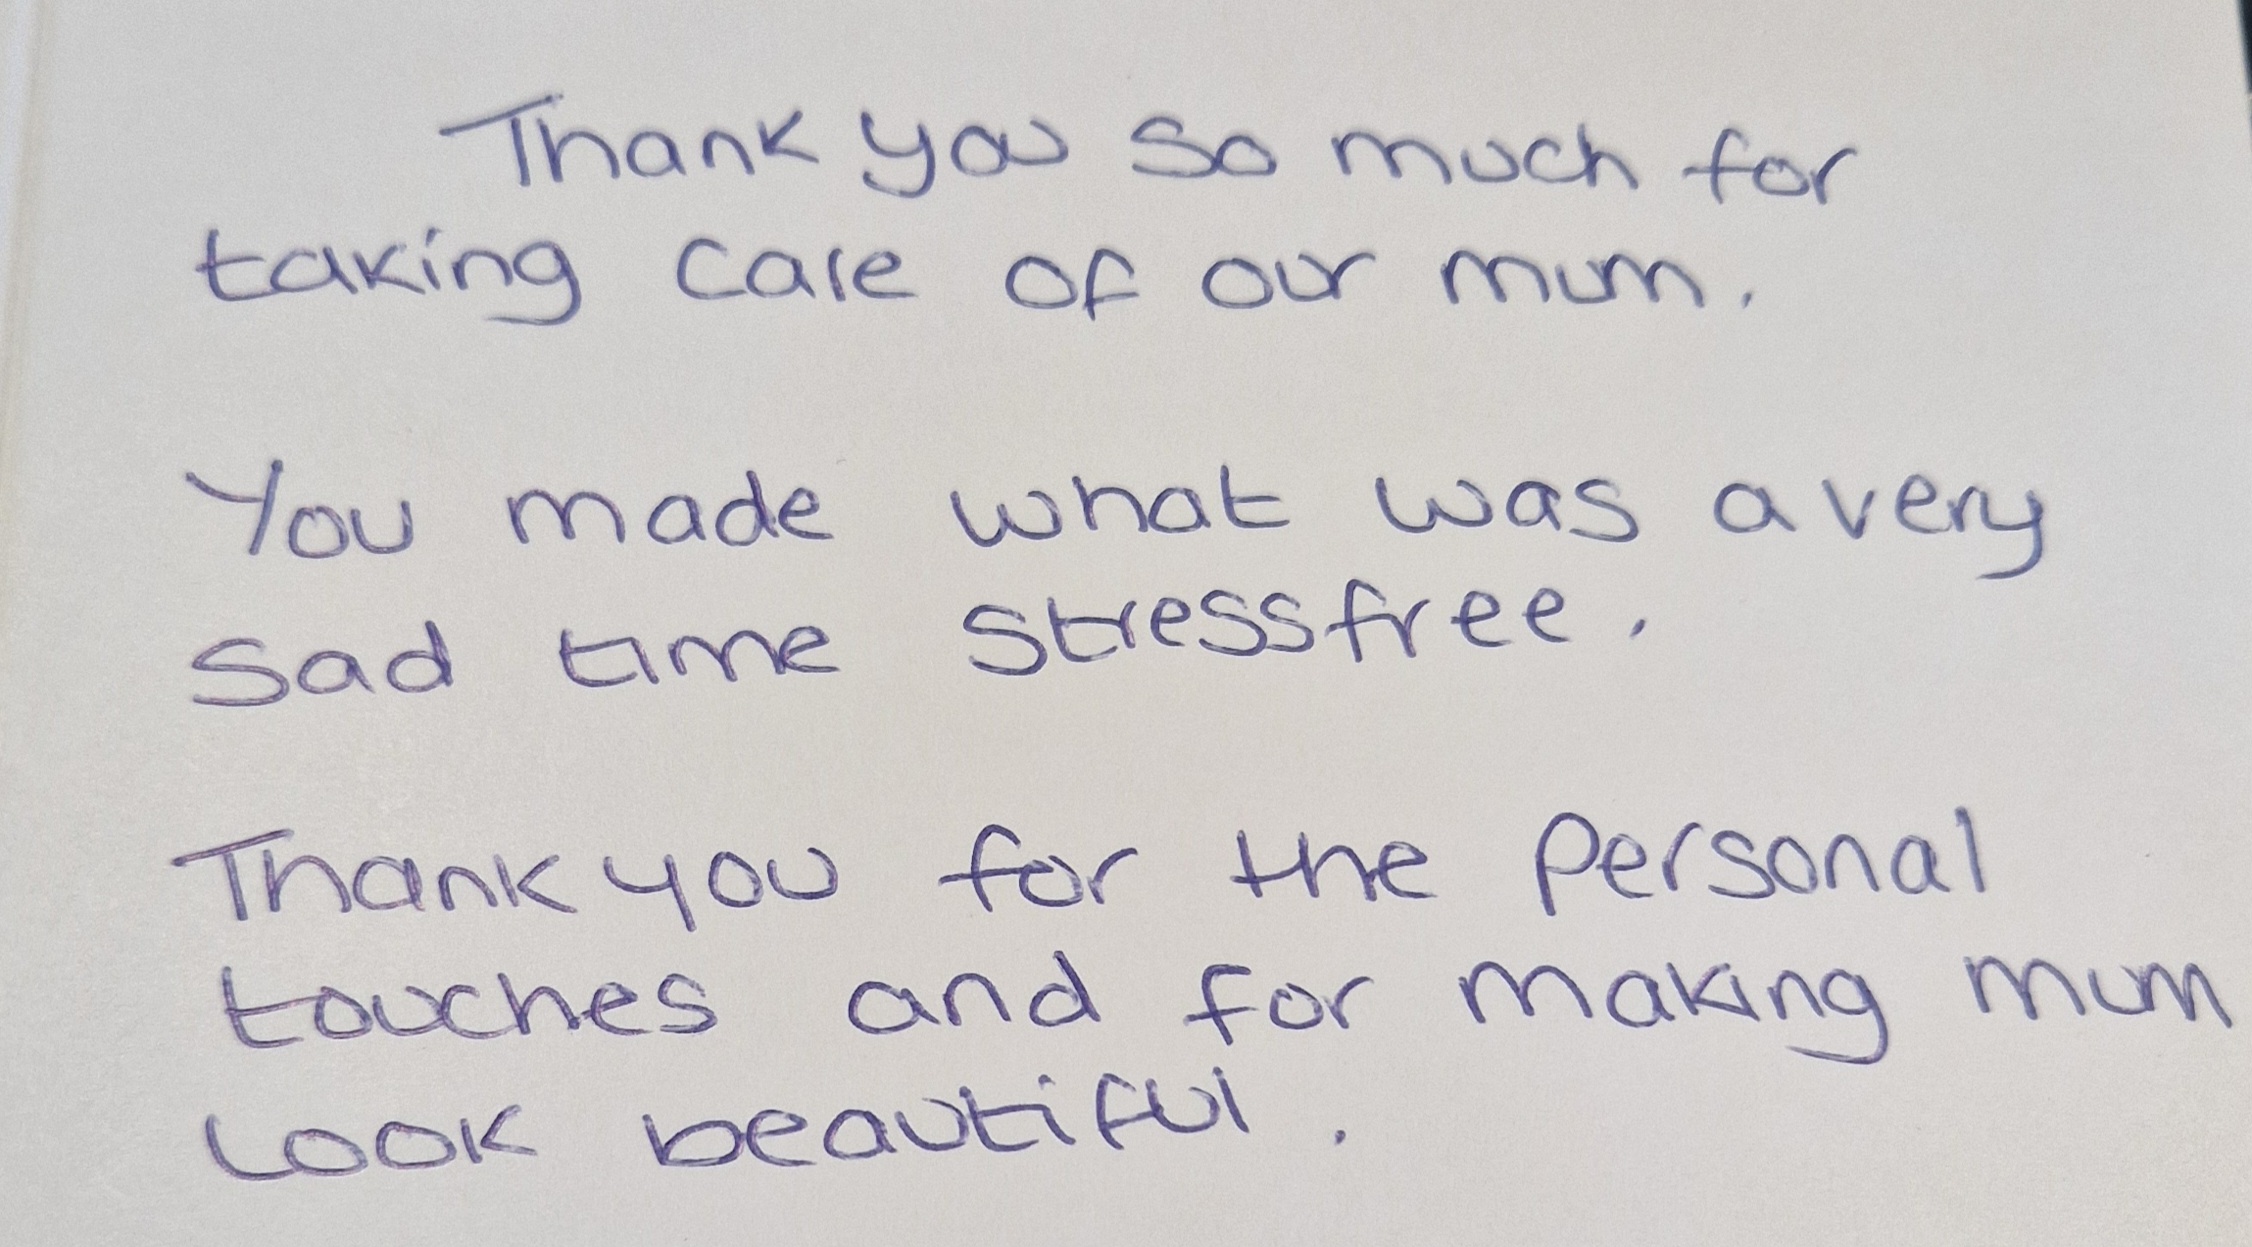 Thank you so much for
taking care of our mum.
You made what was a very
sad time stressfree.
Thank you for the personal
touches and for making mum
look beautiful.